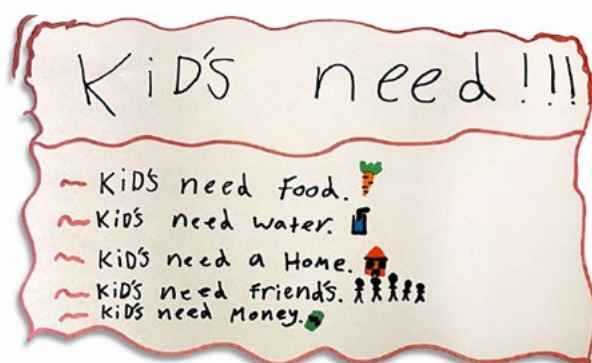 KiD'S need!!!
KiD'S need Food.
KiD'S need water.
KiD'S need a Home.
KiD'S need friend's.
KiD'S need Money.